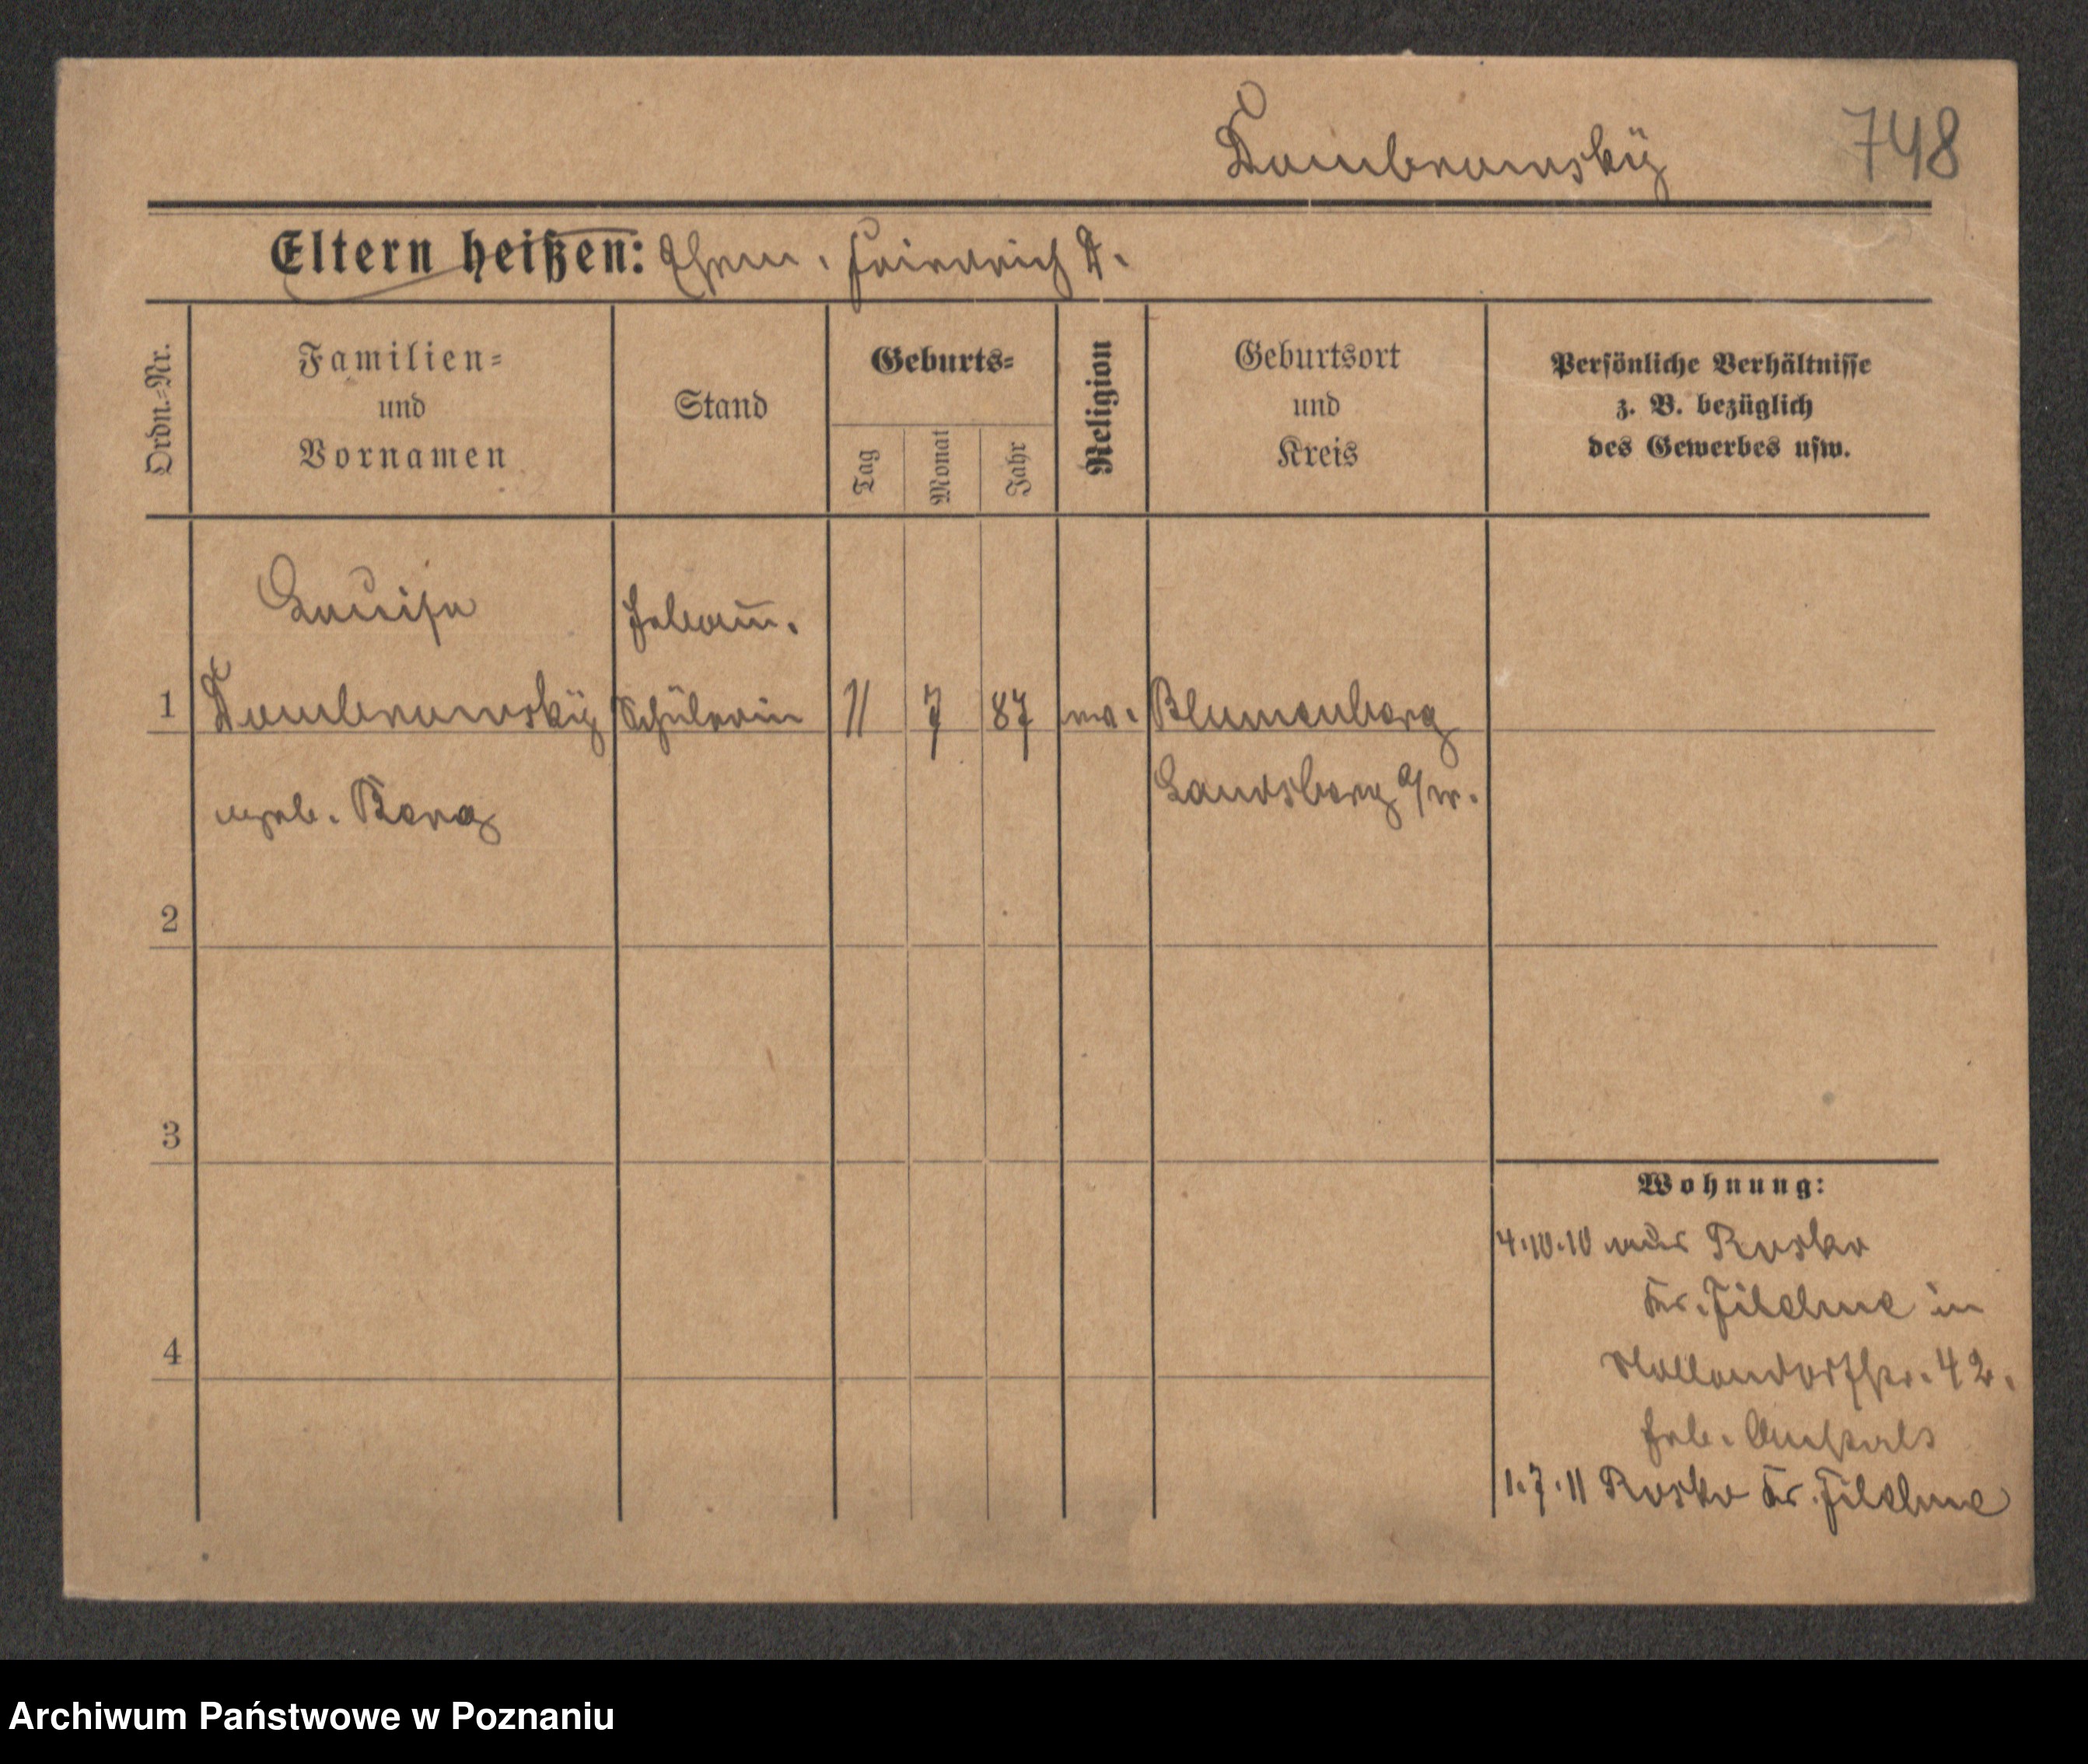 Dombrowsky
748
Eltern heißen: Ehem. Friedrich D.
Ordn.=Nr.
Familien=
und
Vornamen
Stand
Geburts=
Tag
Monat
Jahr
Religion
Geburtsort
und
Kreis
Persönliche Verhältnisse
z. B. bezüglich
des Gewerbes usw.
Louise
Hebam̅.
1 Dombrowsky Schülerin 11 7 87 ev. Blumenberg
geb. Berg
Landsberg a/W.
2
3
4
Wohnung:
4.10.10 aus Rosko
Kr. Filehne in
Nollendorfstr. 42.
Heb. Anstalt
1.7.11 Rosko Kr. Filehne
Archiwum Państwowe w Poznaniu